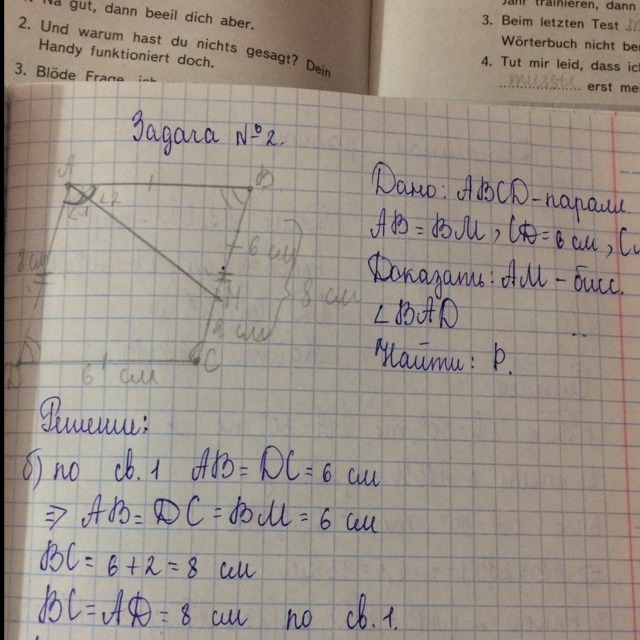 Na gut, dann beeil dich aber.
2. Und warum hast du nichts gesagt? Dein
Handy funktioniert doch.
3. Blöde Frage, ich
Jahr trainieren, dann
3. Beim letzten Test
Wörterbuch nicht be
4. Tut mir leid, dass ic
musste erst me
Задача №2.
A
B
∠1
∠2
8 см
6 см
M
8 см
2 см
D
C
6 см
Дано: ABCD-паралл
AB=BM, CD=6 см, C
Доказать: AM - бисс.
∠BAD
Найти: P.
Решение:
б) по св.1 AB=DC=6 см
⇒ AB=DC=BM=6 см
BC=6+2=8 см
BC=AD=8 см по св.1.